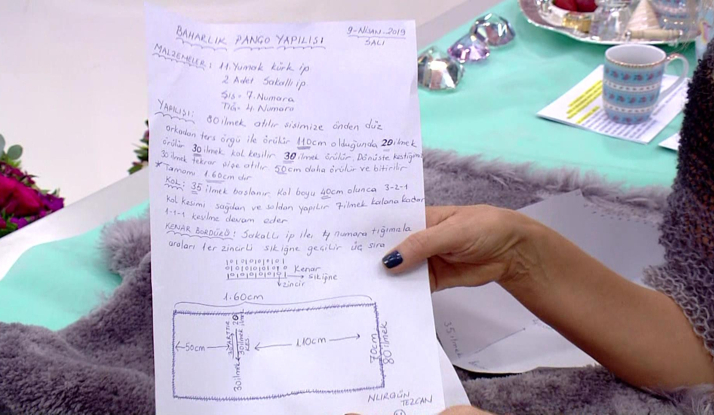 BAHARLIK PANÇO YAPILIŞI
9-NİSAN-2019
SALI
MALZEMELER: 11 Yumak kürk ip
2 Adet Sakallı ip
Şiş = 7. Numara
Tığ = 4. Numara
YAPILIŞI: 80 ilmek atılır şişimize önden düz
arkadan ters örgü ile örülür 110cm olduğunda 20 ilmek
örülür 30 ilmek kol kesilir 30 ilmek örülür. Dönüşte kestiğimiz
30 ilmek tekrar şişe atılır 50cm daha örülür ve bitirilir.
* Tamamı 1.60cm dir
KOL: 35 ilmek başlanır. Kol boyu 40cm olunca 3-2-1
kol kesimi sağdan ve soldan yapılır 7 ilmek kalana kadar
1-1-1 kesilme devam eder
KENAR BORDÜRÜ: Sakallı ip ile 4 numara tığımızla
araları ter zincirli sık iğne geçilir üç sıra
Kenar
sık iğne
zincir
1.60cm
50cm
20
30 ilmek
110cm
70cm
80 ilmek
NURGÜN
TEZCAN